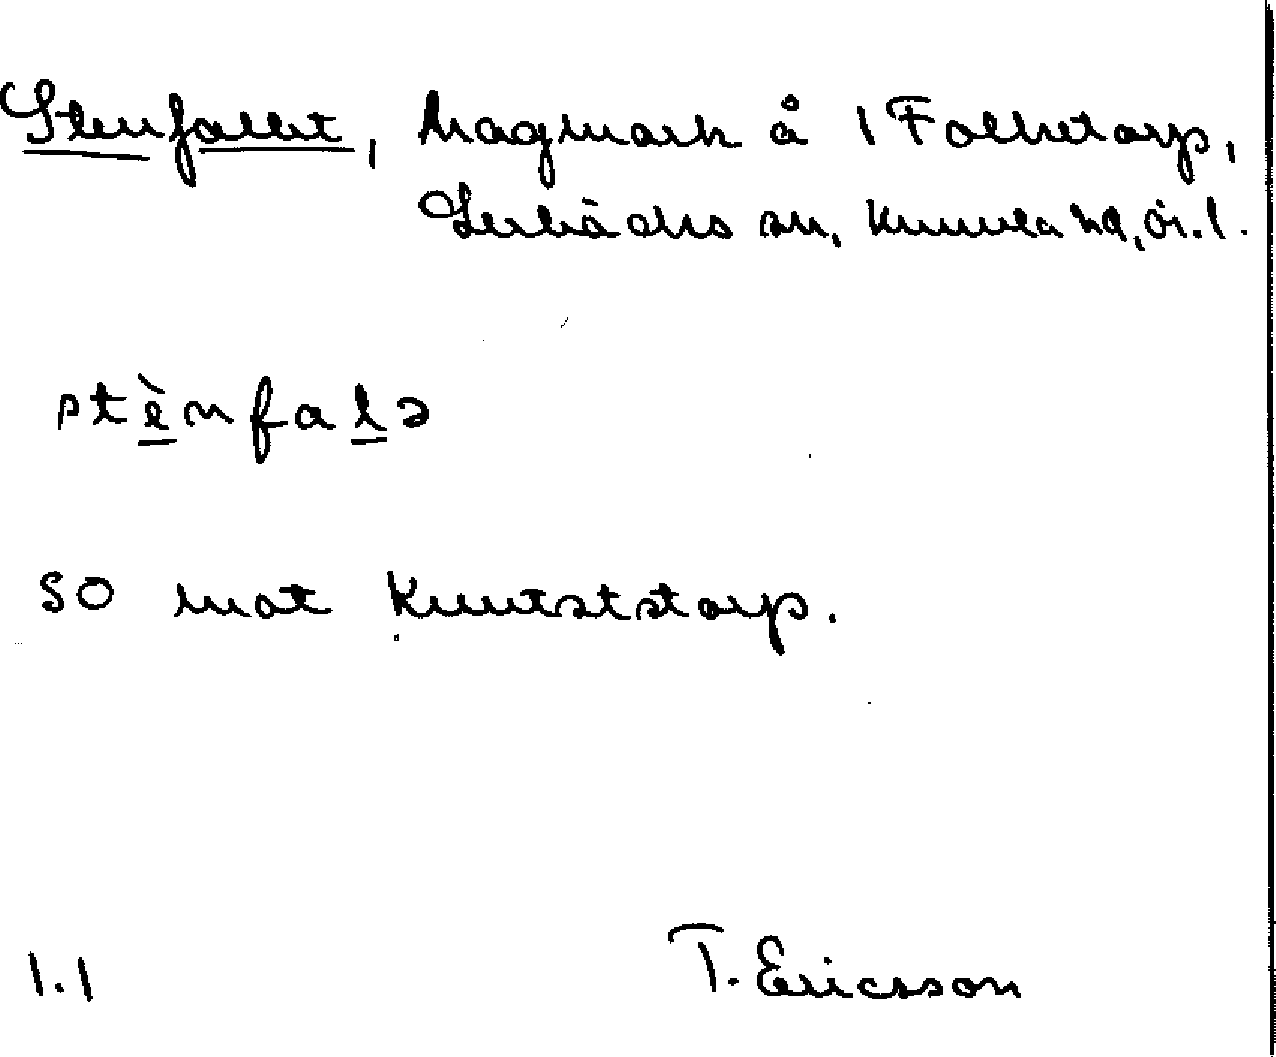 Stenfallet, hagmark å 1 Folketorp,
Lerbäcks sn, Kumla hd, ör.l.
stènfalə
SO mot Knutstorp.
1.1 T. Ericsson